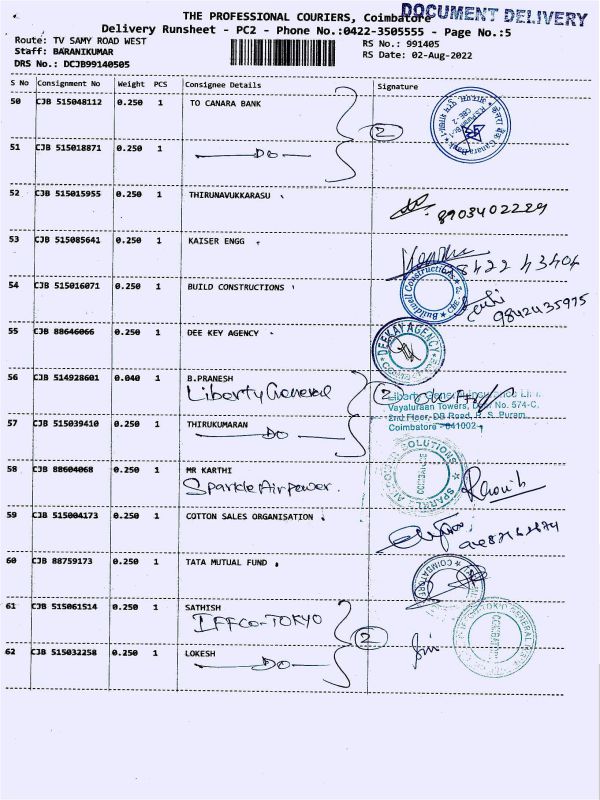 THE PROFESSIONAL COURIERS, Coimbatore
DOCUMENT DELIVERY
Delivery Runsheet - PC2 - Phone No.:0422-3505555 - Page No.:5
Route: TV SAMY ROAD WEST
RS No.: 991405
Staff: BARANIKUMAR
RS Date: 02-Aug-2022
DRS No.: DCJB99140505
S No Consignment No Weight PCS Consignee Details Signature
50 CJB 515048112 0.250 1 TO CANARA BANK
2
Canara Bank
51 CJB 515018871 0.250 1
DO
52 CJB 515015955 0.250 1 THIRUNAVUKKARASU
8903402229
53 CJB 515085641 0.250 1 KAISER ENGG
54 CJB 515016071 0.250 1 BUILD CONSTRUCTIONS
Buildwell Constructions
9842435975
55 CJB 88646066 0.250 1 DEE KEY AGENCY
DEEKAY AGENCY
56 CJB 514928601 0.040 1 B.PRANESH
Liberty General
2
Liberty General
Vayaluraan Towers, Door No. 574-C,
2nd Floor, DB Road, R. S. Puram,
Coimbatore - 641002
57 CJB 515039410 0.250 1 THIRUKUMARAN
DO
58 CJB 88604068 0.250 1 MR KARTHI
Sparkle Airpower.
SOLUTIONS
COIMBATORE
59 CJB 515004173 0.250 1 COTTON SALES ORGANISATION
60 CJB 88759173 0.250 1 TATA MUTUAL FUND
COIMBATORE
61 CJB 515061514 0.250 1 SATHISH
IFFCO-TOKYO
2
62 CJB 515032258 0.250 1 LOKESH
DO